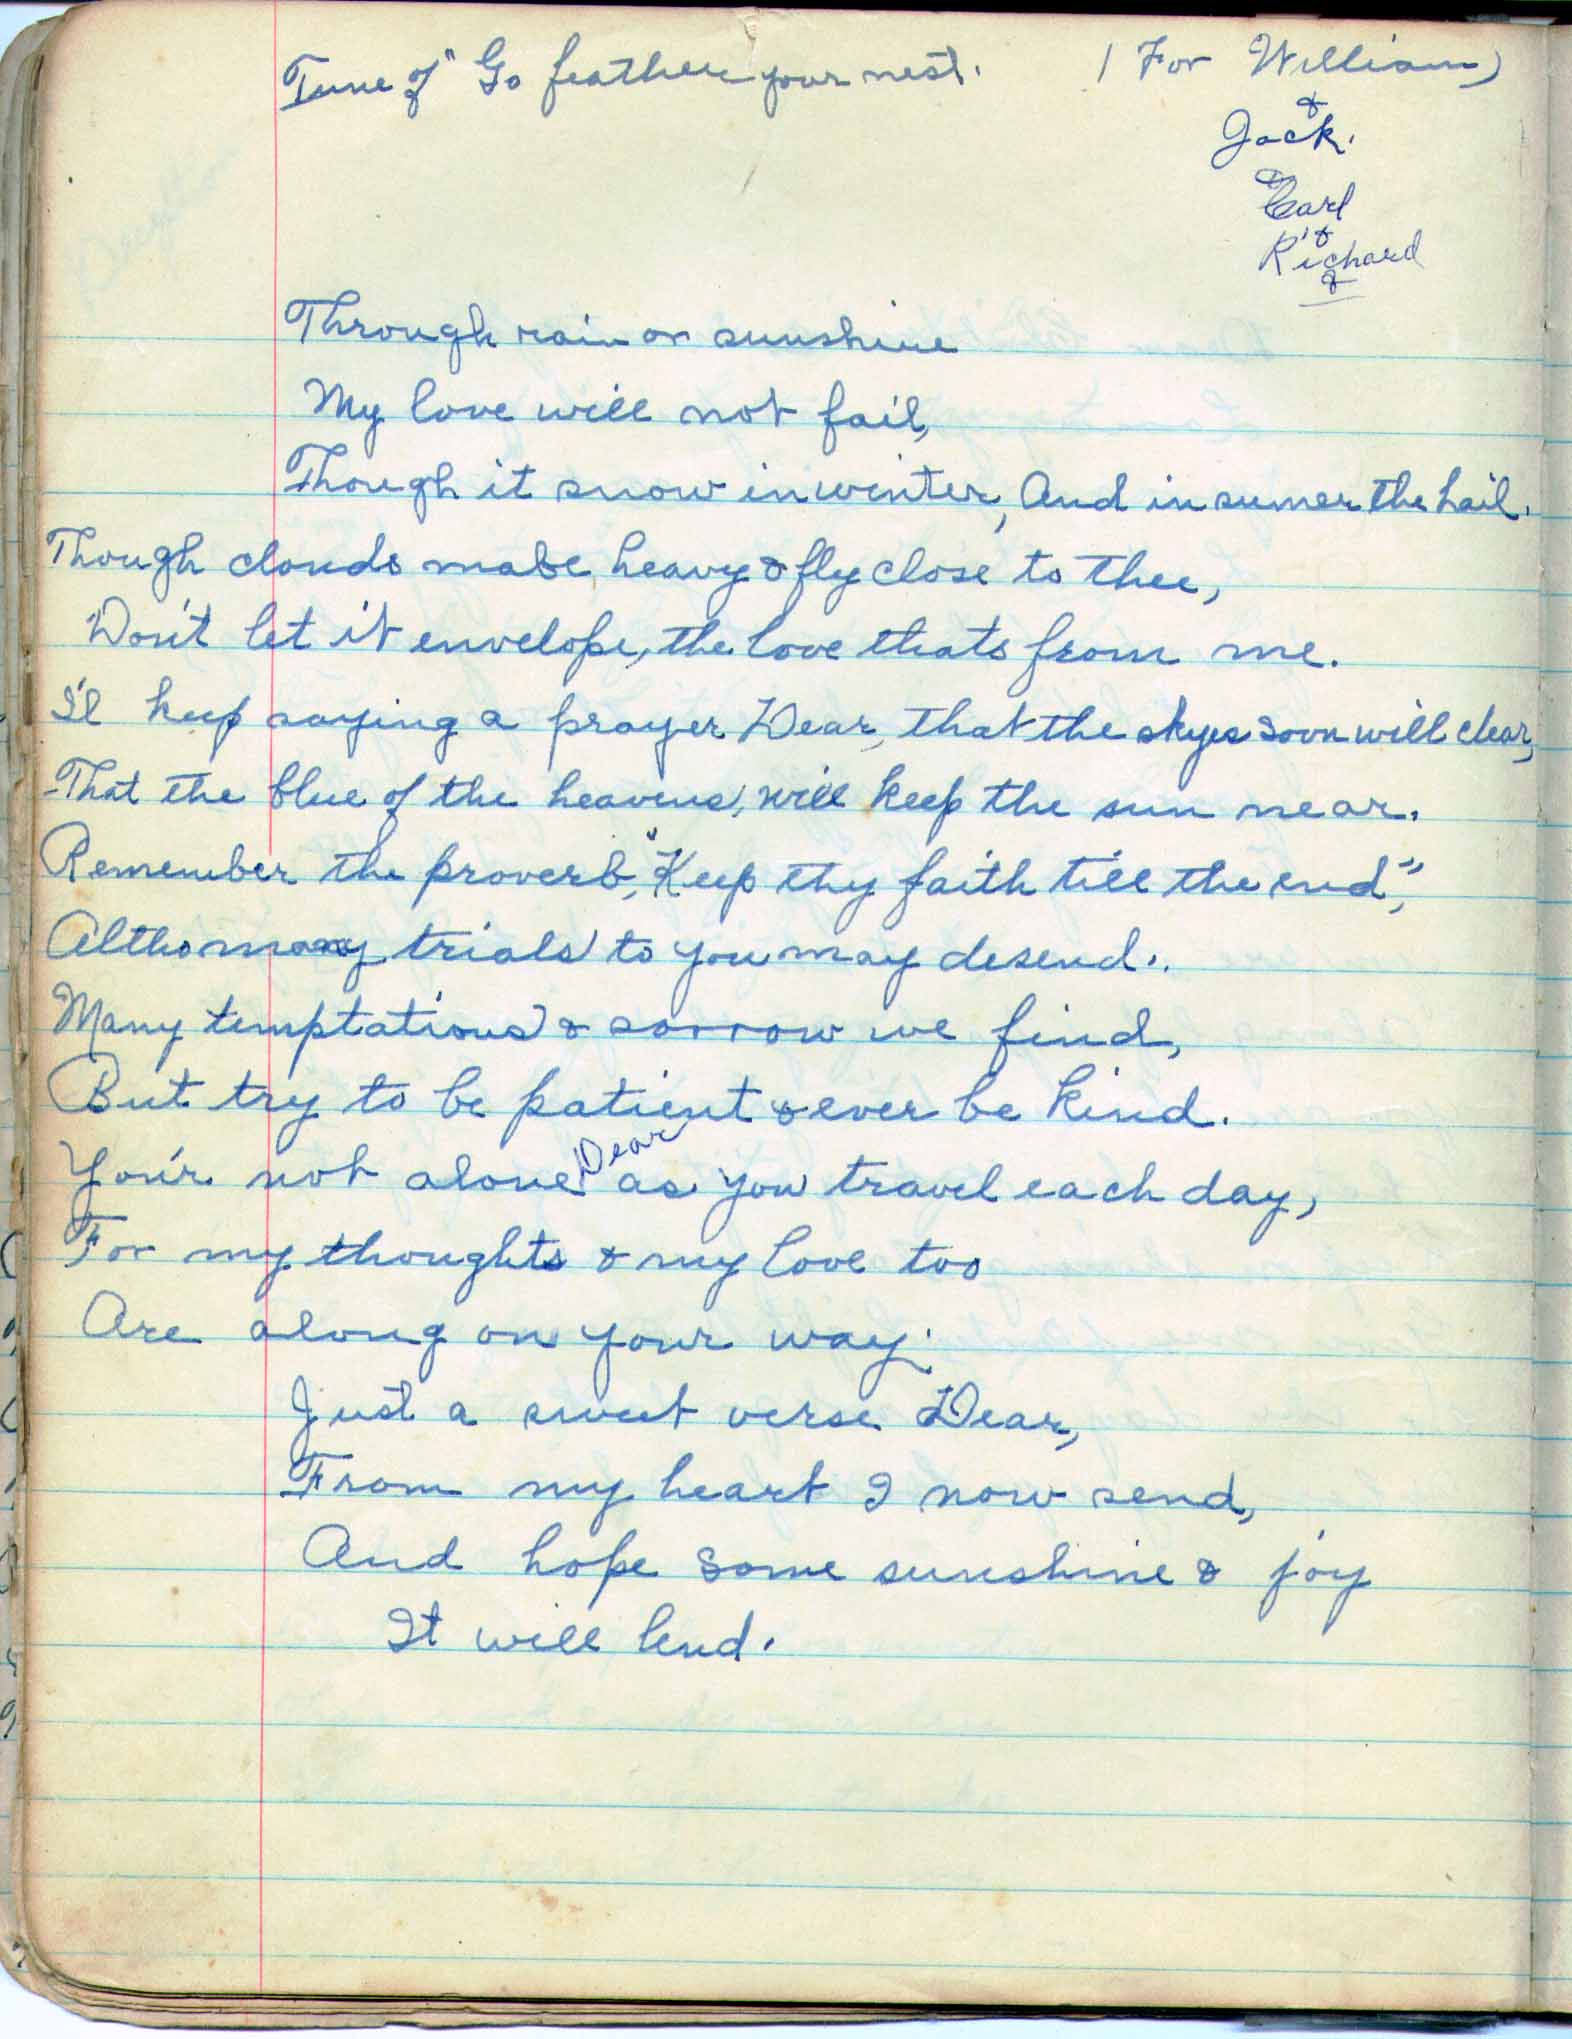 Tune of "Go feather your nest. (For William)
&
Jack.
&
Carl
&
Richard
&
Through rain or sunshine
My love will not fail,
Though it snow in winter, And in sumer the hail.
Though clouds mabe heavy & fly close to thee,
Don't let it envelope, the love thats from me.
I'l keep saying a prayer Dear, that the skyes soon will clear,
That the blue of the heavens, will keep the sun near.
Remember the proverb, "Keep thy faith till the end",
Altho many trials to you may desend..
Many temptations & sorrow we find,
But try to be patient & ever be kind.
You'r not alone Dear as you travel each day,
For my thoughts & my love too
Are along on your way.
Just a sweet verse Dear,
From my heart I now send,
And hope some sunshine & joy
It will lend.